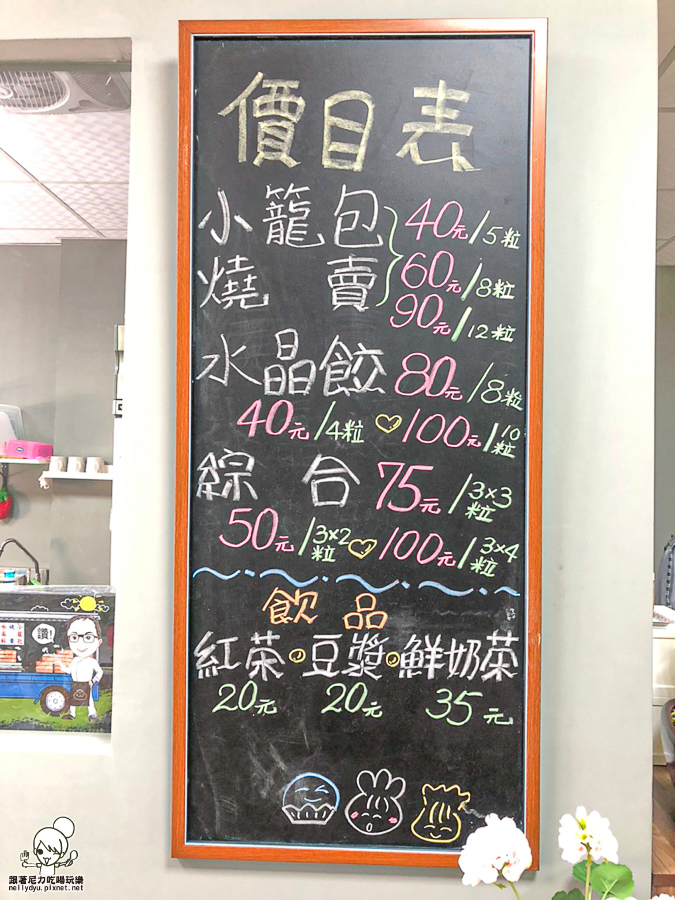 價目表
小籠包 40元/5粒
燒賣 60元/8粒
90元/12粒
水晶餃 80元/8粒
40元/4粒 100元/10粒
綜合 75元/3×3粒
50元/3×2粒 100元/3×4粒
飲品
紅茶 豆漿 鮮奶茶
20元 20元 35元
讚!
跟著尼力吃喝玩樂
nellydyu.pixnet.net